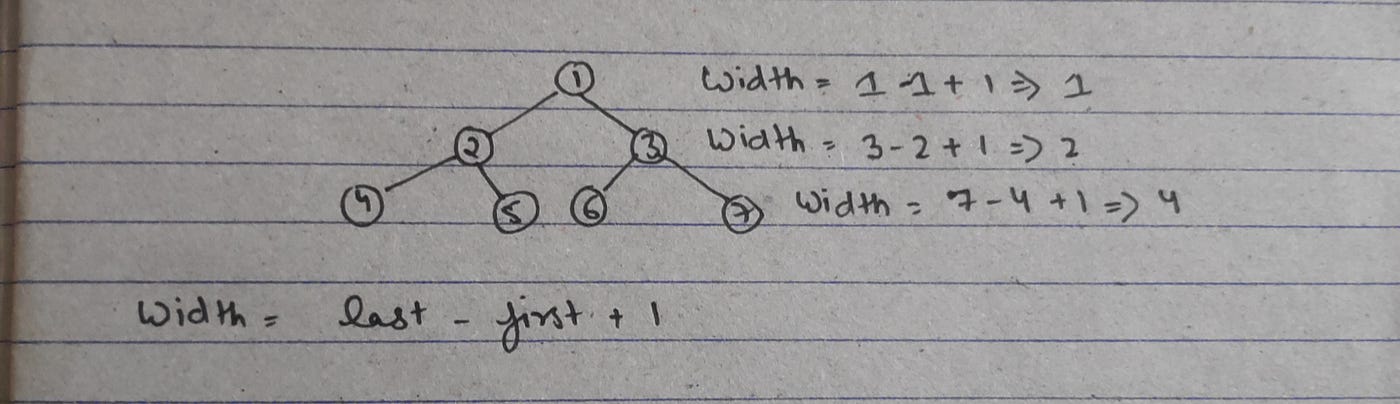 1 Width = 1 - 1 + 1 => 1
2 3 Width = 3 - 2 + 1 => 2
4 5 6 7 Width = 7 - 4 + 1 => 4
Width = last - first + 1